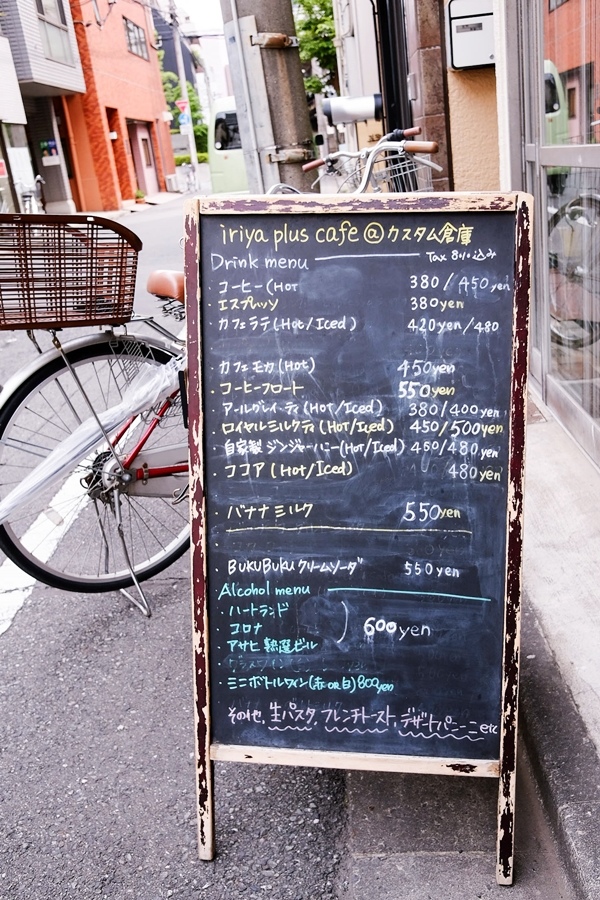 iriya plus cafe @ カスタム倉庫
Drink menu Tax 8% 込み
・コーヒー(Hot 380/450yen
・エスプレッソ 380yen
・カフェラテ(Hot/Iced) 420yen/480
・カフェモカ(Hot) 450yen
・コーヒーフロート 550yen
・アールグレイティ(HOT/Iced) 380/400yen
・ロイヤルミルクティ(HOT/Iced) 450/500yen
・自家製ジンジャーハニー(Hot/Iced) 460/480yen
・ココア(Hot/Iced) 480yen
・バナナミルク 550yen
・BUKUBUKUクリームソーダ 550yen
Alcohol menu
・ハートランド
・コロナ 600yen
・アサヒ熟撰ビール
・ミニボトルワイン(赤OR白)800yen
その他、生パスタ、フレンチトースト、デザートパニーニetc